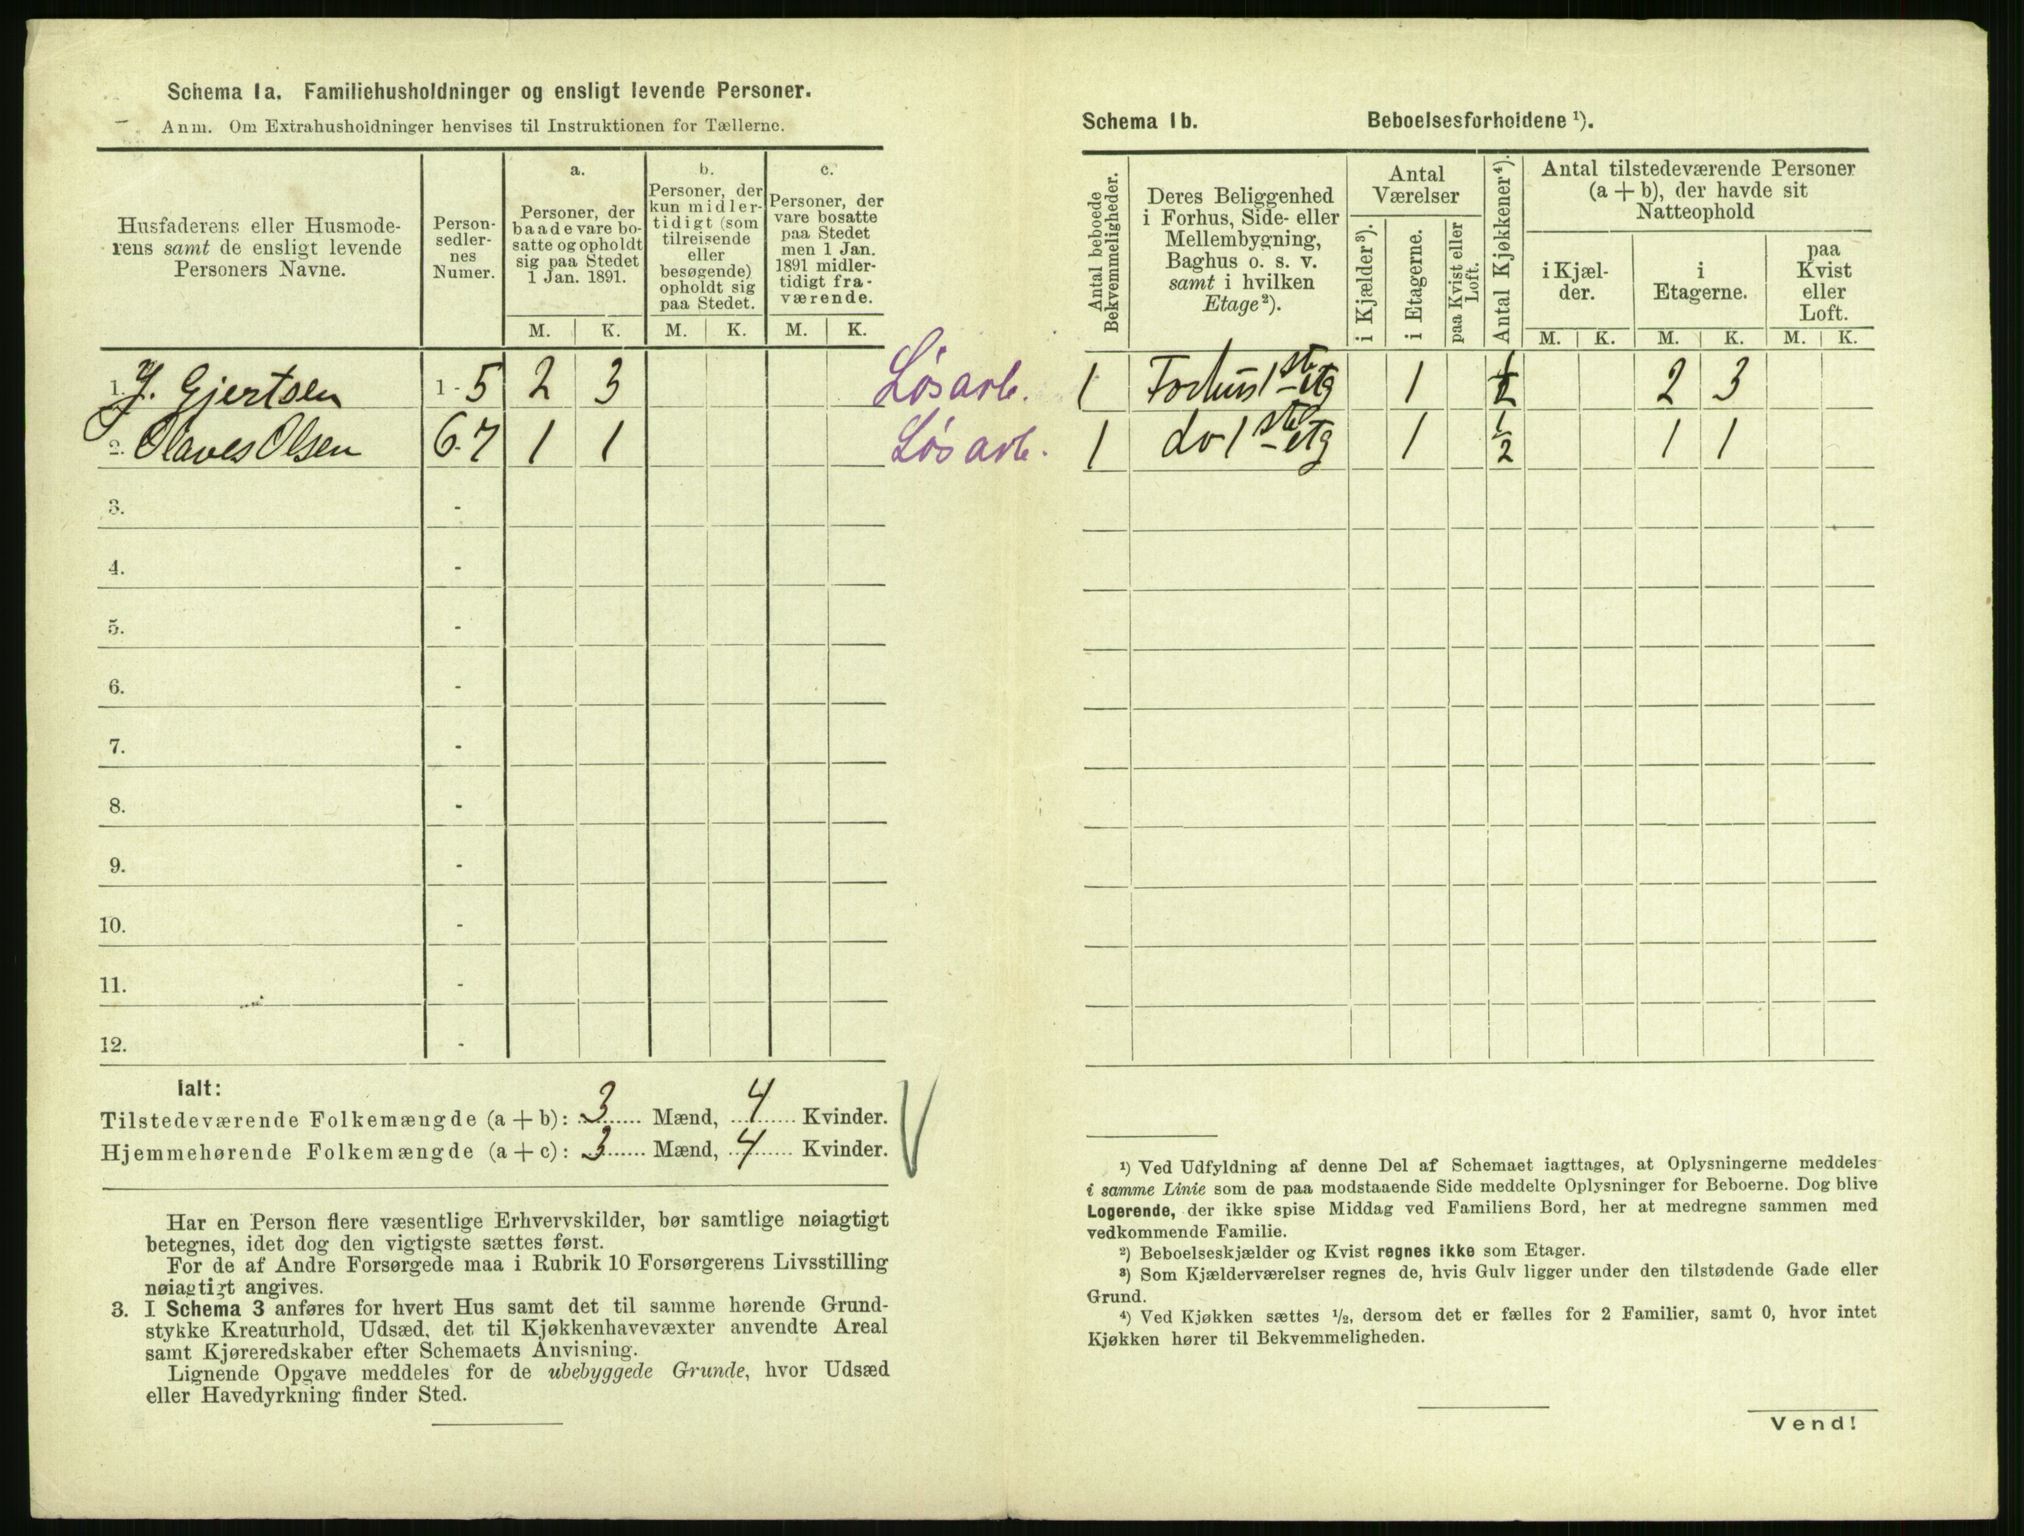 Schema 1a. Familiehusholdninger og ensligt levende Personer.
Anm. Om Extrahusholdninger henvises til Instruktionen for Tællerne.
Husfaderens eller Husmode-
rens samt de ensligt levende
Personers Navne.
Person-
sedler-
nes
Numer.
a.
Personer, der
baade vare bo-
satte og opholdt
sig paa Stedet
1 Jan. 1891.
b.
Personer, der
kun midler-
tidigt (som
tilreisende
eller
besøgende)
opholdt sig
paa Stedet.
c.
Personer, der
vare bosatte
paa Stedet
men 1 Jan.
1891 midler-
tidigt fra-
værende.
M. K. M. K. M. K.
1. J. Gjertsen 1-5 2 3 Løsarb.
2. Olaves Olsen 6-7 1 1 Løsarb.
3. -
4. -
5. -
6. -
7. -
8. -
9. -
10. -
11. -
12. -
Ialt:
Tilstedeværende Folkemængde (a + b): 3 Mænd, 4 Kvinder.
Hjemmehørende Folkemængde (a + c): 3 Mænd, 4 Kvinder.
Har en Person flere væsentlige Erhvervskilder, bør samtlige nøiagtigt
betegnes, idet dog den vigtigste sættes først.
For de af Andre Forsørgede maa i Rubrik 10 Forsørgerens Livsstilling
nøiagtigt angives.
3. I Schema 3 anføres for hvert Hus samt det til samme hørende Grund-
stykke Kreaturhold, Udsæd, det til Kjøkkenhavevæxter anvendte Areal
samt Kjøreredskaber efter Schemaets Anvisning.
Lignende Opgave meddeles for de ubebyggede Grunde, hvor Udsæd
eller Havedyrkning finder Sted.
Schema 1b. Beboelsesforholdene ¹).
Antal beboede
Bekvemmeligheder.
Deres Beliggenhed
i Forhus, Side- eller
Mellembygning,
Baghus o. s. v.
samt i hvilken
Etage²).
Antal
Værelser
i Kjælder³).
i Etagerne.
paa Kvist eller
Loft.
Antal Kjøkkener⁴).
Antal tilstedeværende Personer
(a + b), der havde sit
Natteophold
i Kjæl-
der.
i
Etagerne.
paa
Kvist
eller
Loft.
M. K. M. K. M. K.
1 Forhus 1ste etg 1 ½ 2 3
1 do 1ste etg 1 ½ 1 1
¹) Ved Udfyldning af denne Del af Schemaet iagttages, at Oplysningerne meddeles
i samme Linie som de paa modstaaende Side meddelte Oplysninger for Beboerne. Dog blive
Logerende, der ikke spise Middag ved Familiens Bord, her at medregne sammen med
vedkommende Familie.
²) Beboelseskjælder og Kvist regnes ikke som Etager.
³) Som Kjælderværelser regnes de, hvis Gulv ligger under den tilstødende Gade eller
Grund.
⁴) Ved Kjøkken sættes ½, dersom det er fælles for 2 Familier, samt 0, hvor intet
Kjøkken hører til Bekvemmeligheden.
Vend!